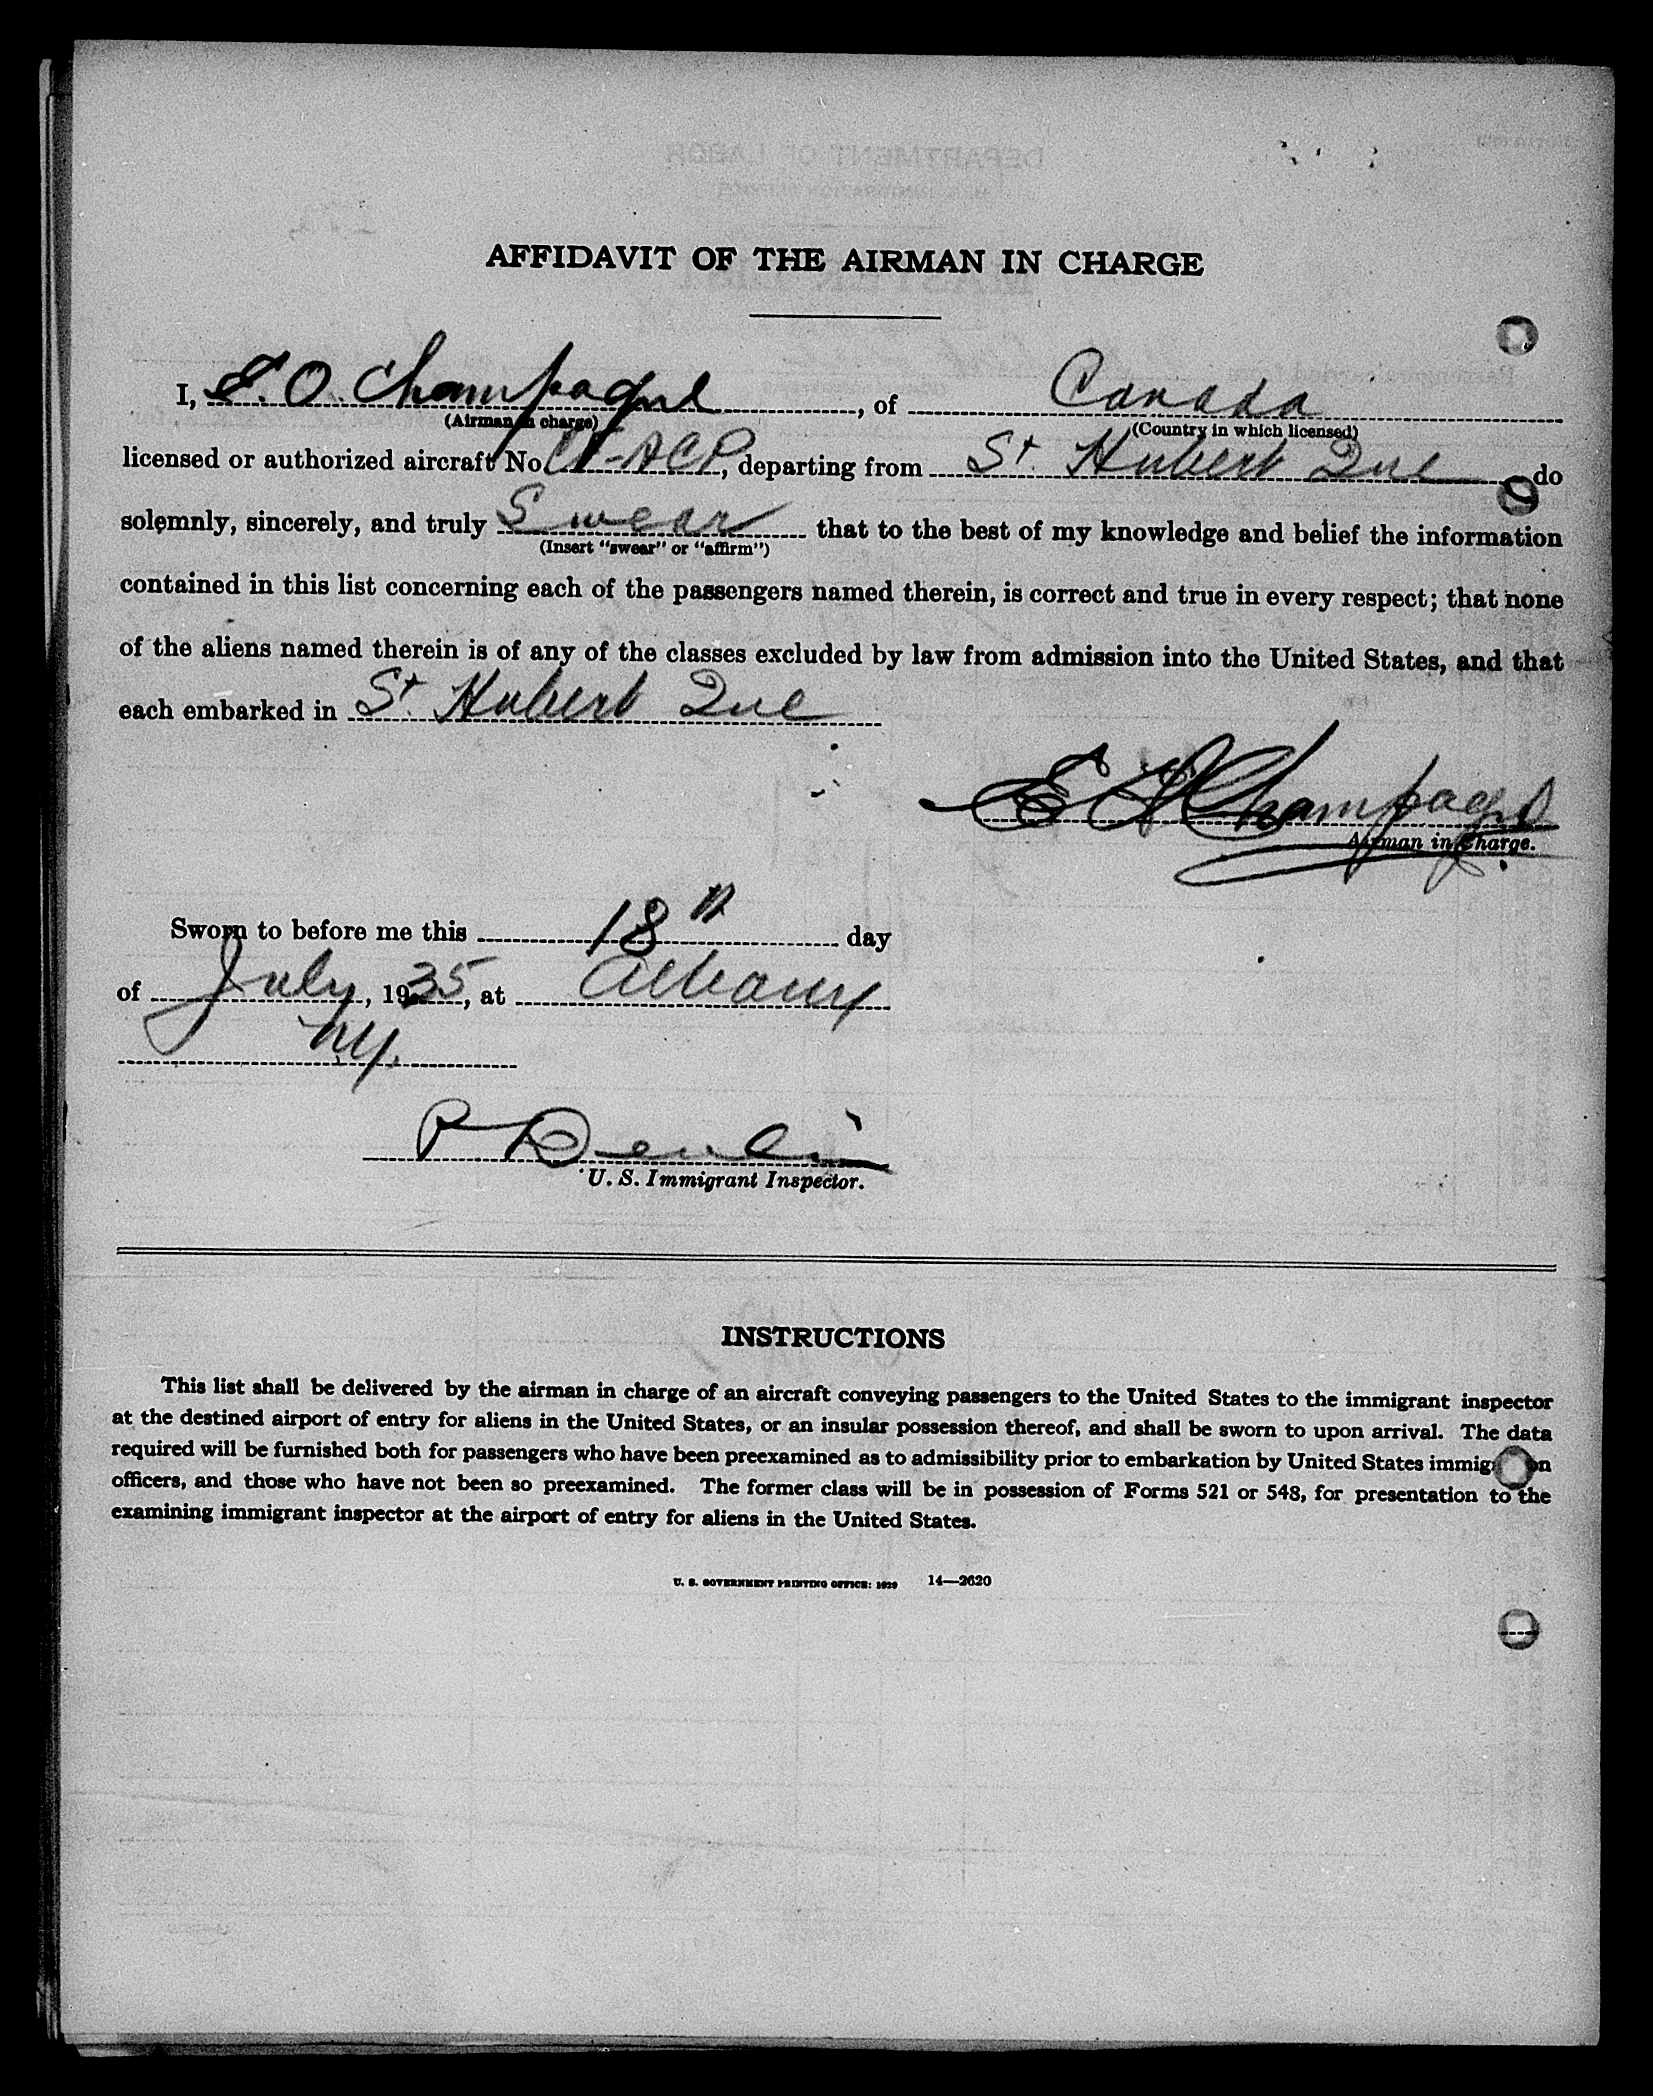 AFFIDAVIT OF THE AIRMAN IN CHARGE
I, E. O. Champagne, of Canada
(Airman in charge) (Country in which licensed)
licensed or authorized aircraft No CF-ACP, departing from St. Hubert Que do
solemnly, sincerely, and truly Swear that to the best of my knowledge and belief the information
(Insert "swear" or "affirm")
contained in this list concerning each of the passengers named therein, is correct and true in every respect; that none
of the aliens named therein is of any of the classes excluded by law from admission into the United States, and that
each embarked in St. Hubert Que
Champagne
Airman in Charge.
Sworn to before me this 18th day
of July, 1935, at Albany
N.Y.
P Devlin
U. S. Immigrant Inspector.
INSTRUCTIONS
This list shall be delivered by the airman in charge of an aircraft conveying passengers to the United States to the immigrant inspector
at the destined airport of entry for aliens in the United States, or an insular possession thereof, and shall be sworn to upon arrival. The data
required will be furnished both for passengers who have been preexamined as to admissibility prior to embarkation by United States immigration
officers, and those who have not been so preexamined. The former class will be in possession of Forms 521 or 548, for presentation to the
examining immigrant inspector at the airport of entry for aliens in the United States.
U. S. GOVERNMENT PRINTING OFFICE: 1929 14—2620